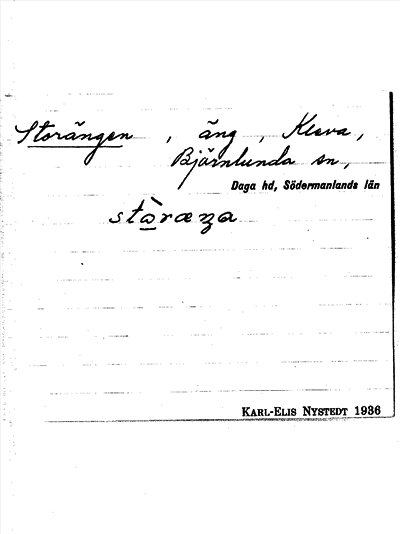 Storängen, äng, Kleva,
Bjärnlunda sn,
Daga hd, Södermanlands län
KARL-ELIS NYSTEDT 1936